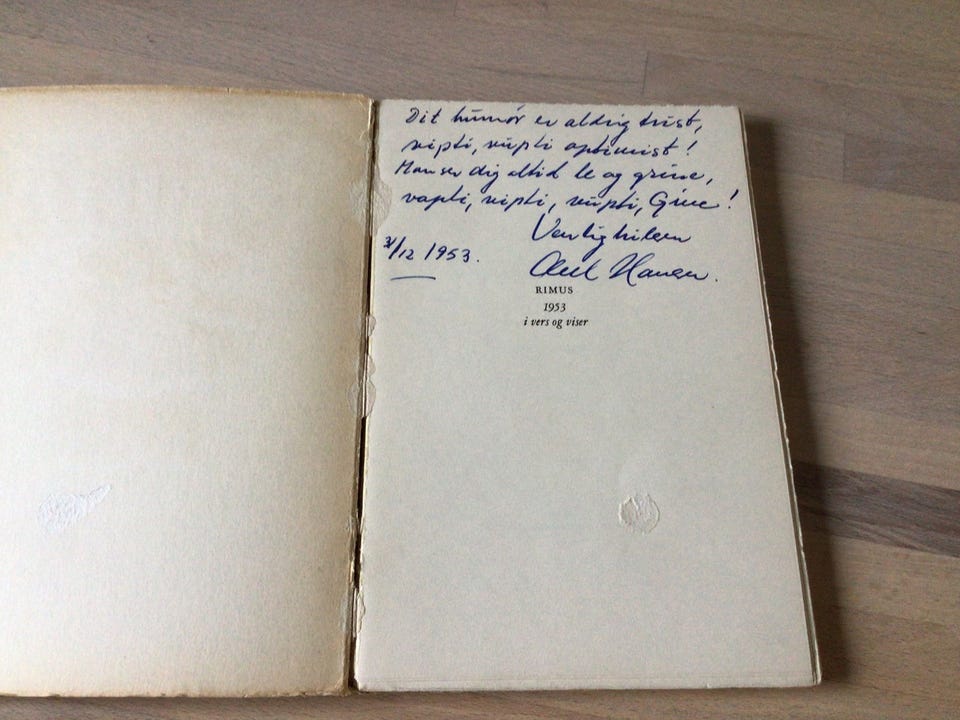 Dit humør er aldrig trist,
vipti, vupti optimist!
Man ser dig altid le og grine,
vapti, vipti, vupti, Grine!
Venlig hilsen
31/12 1953.
Hansen.
RIMUS
1953
i vers og viser